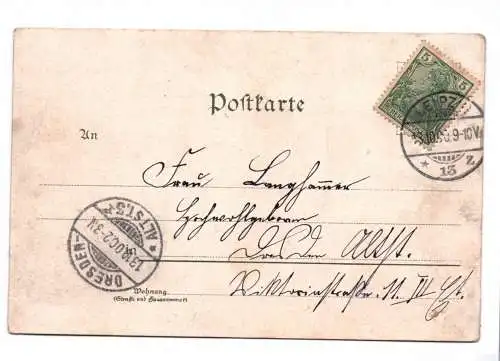 5 5
LEIPZIG
9-10V.
* 13 Z.
Postkarte
An
Frau Langhammer
Hochwohlgeboren
in Dresden Altst.
Viktoriastraße 11 III Et.
Wohnung
(Straße und Hausnummer)
DRESDEN
* ALTST.5
13.10.00.2-3N.